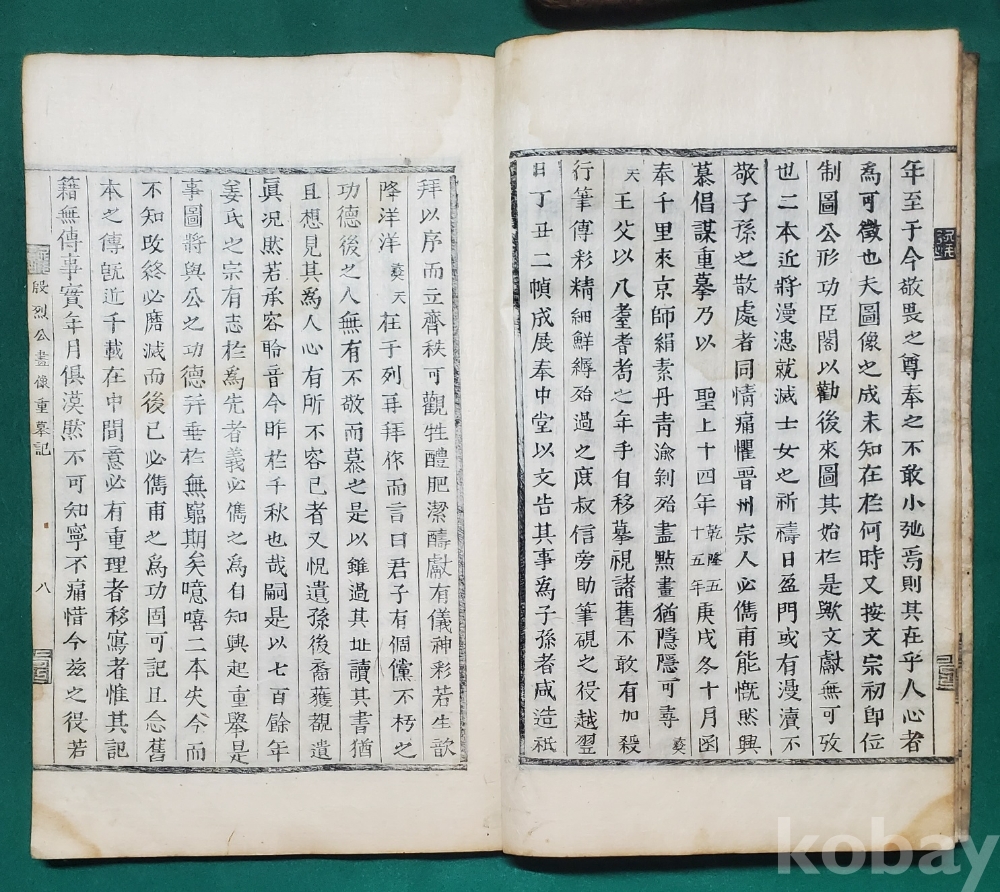 年至于今敬畏之尊奉之不敢小弛焉則其在乎人心者
爲可徵也夫圖像之成未知在於何時又按文宗初卽位
制圖公形功臣閣以勸後來圖其始於是歟文獻無可攷
也二本近將漫漶就滅士女之祈禱日盈門或有漫瀆不
敬子孫之散處者同情痛懼晋州宗人必儁甫能慨然興
慕倡謀重摹乃以 聖上十四年乾隆五十五年庚戌冬十月函
奉千里來京師絹素丹靑渝剝殆盡點畫猶隱隱可尋奭
天王父以八耋耆耇之年手自移摹視諸舊不敢有加殺
行筆傅彩精細鮮縟殆過之庶叔信旁助筆硯之役越翌
日丁丑二幀成展奉中堂以文告其事爲子孫者咸造祇
拜以序而立齊秩可觀牲醴肥潔醻獻有儀神彩若生歆
降洋洋奭天在于列再拜作而言曰君子有倜儻不朽之
功德後之人無有不敬而慕之是以雖過其址讀其書猶
且想見其爲人心有所不容已者又怳遺孫後裔獲覩遺
眞况然若承容聆音今昨於千秋也哉嗣是以七百餘年
姜氏之宗有志於爲先者義必儁之爲自知興起重擧是
事圖將與公之功德幷垂於無窮期矣噫嘻二本失今而
不知改終必磨滅而後已必儁甫之爲功固可記且念舊
本之傳旣近千載在中間意必有重理者移寫者惟其記
籍無傳事實年月俱漠然不可知寧不痛惜今玆之役若
殷烈公畫像重摹記
八
kobay